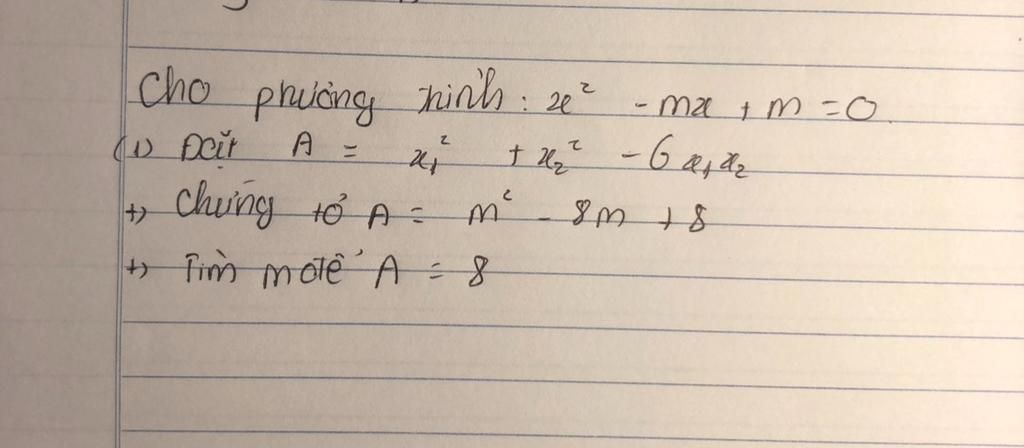 Cho phương trình: x² - mx + m = 0.
(1) Đặt A = x₁² + x₂² - 6x₁x₂
+) Chứng tỏ A = m² - 8m + 8
+) Tìm m để A = 8